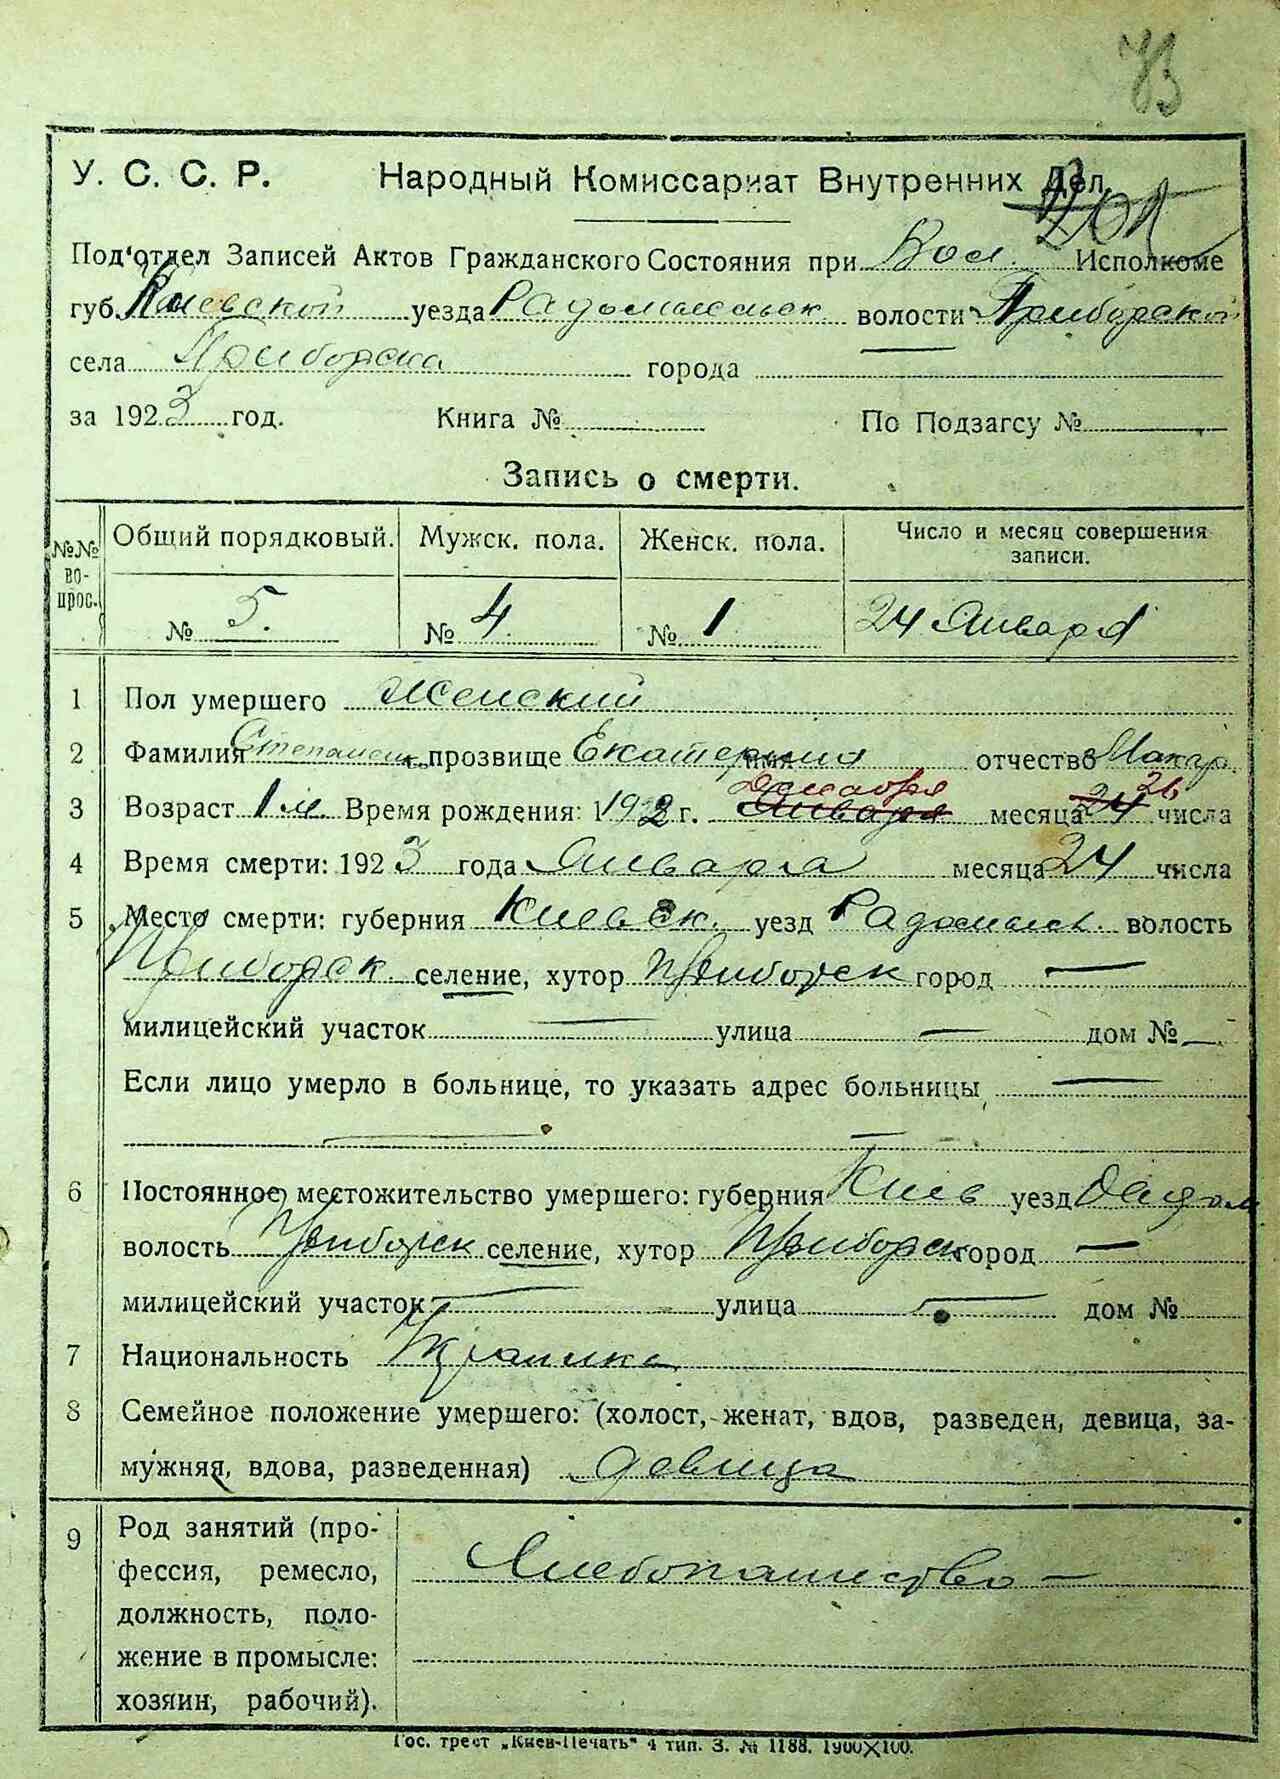 73
У. С. С. Р. Народный Комиссариат Внутренних Дел
Под'отдел Записей Актов Гражданского Состояния при Вол. Исполкоме
губ. Киевской уезда Радомысльск. волости Приборской
села Приборска города
за 1923 год. Книга № По Подзагсу №
Запись о смерти.
№№ во-прос. Общий порядковый. Мужск. пола. Женск. пола. Число и месяц совершения записи.
№ 5. № 4. № 1 24 Января
1 Пол умершего Женский
2 Фамилия прозвище Екатерина отчество Макар.
3 Возраст 1 м. Время рождения: 1922 г. Января Декабря месяца 24 26 числа
4 Время смерти: 1923 года Января месяца 24 числа
5 Место смерти: губерния Киевск. уезд Радомысл. волость
Приборск. селение, хутор Приборск город —
милицейский участок — улица — дом № —
Если лицо умерло в больнице, то указать адрес больницы —
6 Постоянное местожительство умершего: губерния Киев уезд Радом
волость Приборск селение, хутор Приборск город —
милицейский участок — улица — дом №
7 Национальность Украинка
8 Семейное положение умершего: (холост, женат, вдов, разведен, девица, за-
мужняя, вдова, разведенная) девица
9 Род занятий (про-
фессия, ремесло, Хлебопашество —
должность, поло-
жение в промысле:
хозяин, рабочий).
Гос. трест „Киев-Печать" 4 тип. З. № 1188. 1900X100.